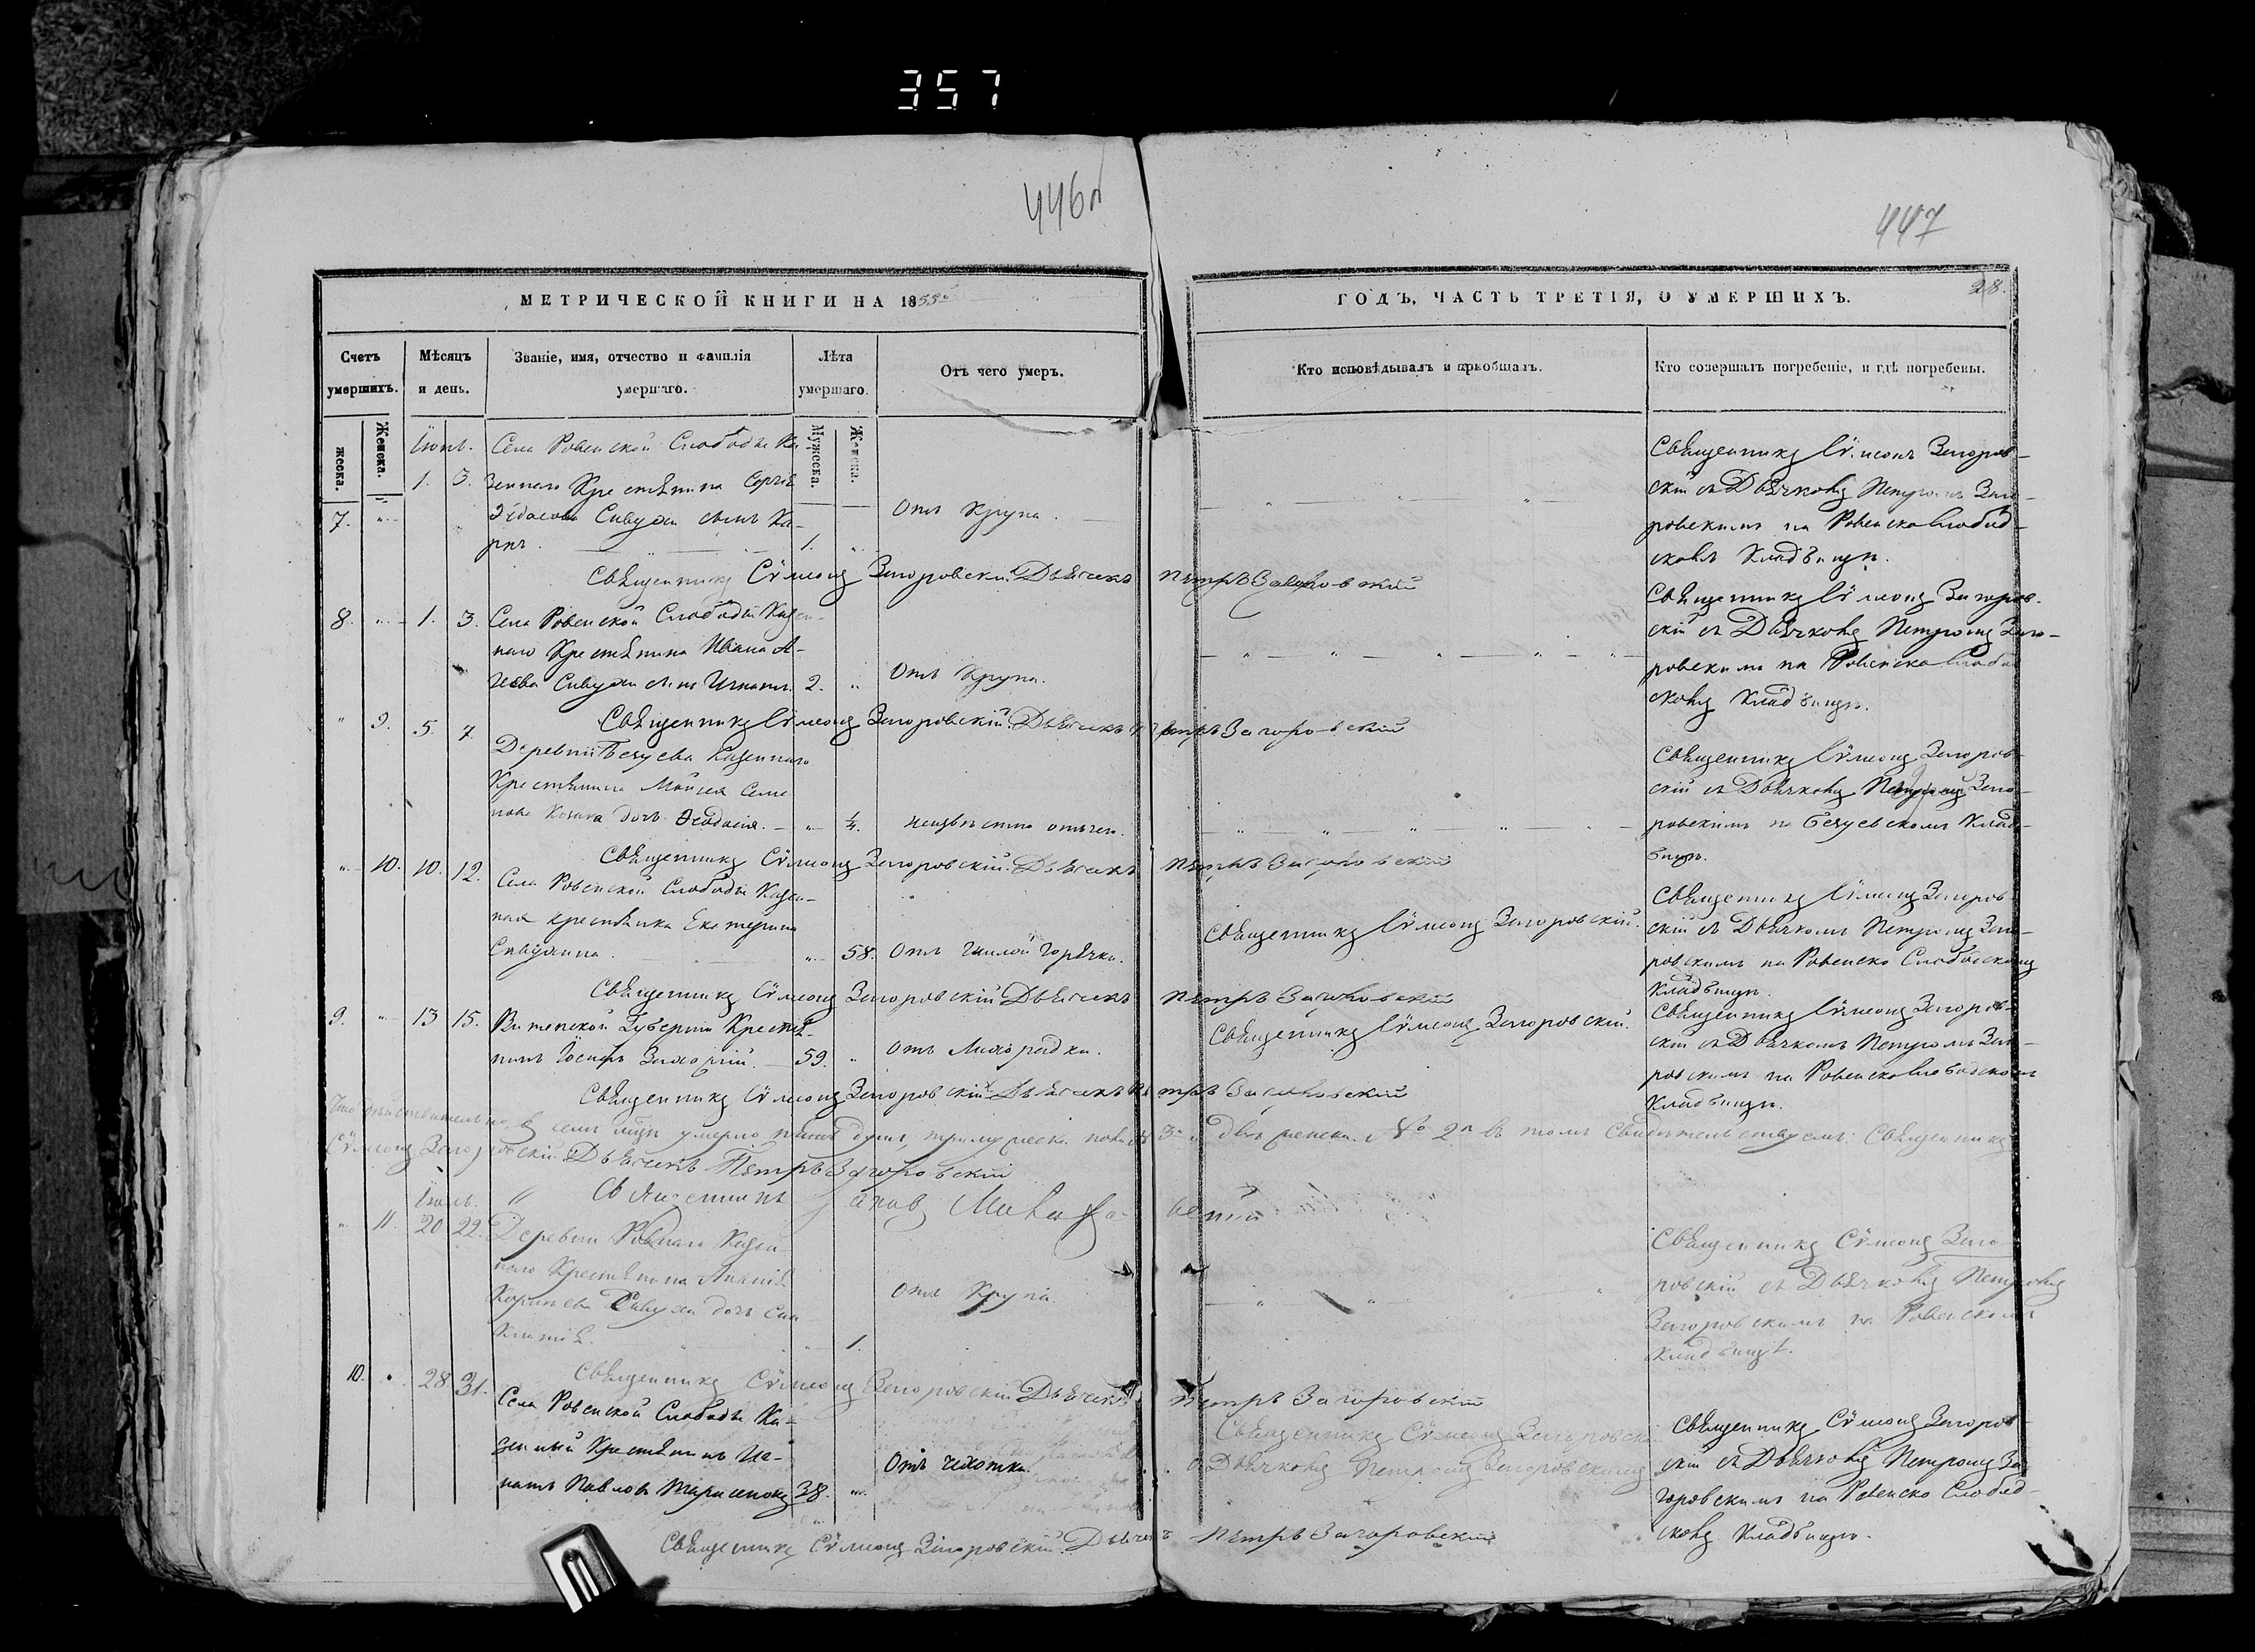 357
446об
447
28.
МЕТРИЧЕСКОЙ КНИГИ НА 1855й
ГОДЪ, ЧАСТЬ ТРЕТІЯ, О УМЕРШИХЪ.
Счетъ умершихъ.
Мѣсяцъ и день.
Званіе, имя, отчество и фамилія умершаго.
Лѣта умершаго.
Отъ чего умеръ.
Кто исповѣдывалъ и пріобщалъ.
Кто совершалъ погребеніе, и гдѣ погребены.
жеска.
Женска.
Мужеска.
Женска.
Іюнь.
Села Ровенской Слободы Ка
1. 3. зеннаго Крестьянина Сергія
7. Сивухи сынъ Ка-
рпъ. 1.
Отъ Крупа.
Священникъ Сѵмеонъ Загоров-
скій съ Дьячкомъ Петромъ Заго-
ровскимъ на Ровенскослобод-
скомъ Кладбищѣ.
Священникъ Сѵмеонъ Загоровскій Дьячекъ Петръ Загоровскій
8. 1. 3. Села Ровенской Слободы Казен-
наго Крестьянина Ивана А-
Сивухи сынъ Игнатъ. 2.
Отъ Крупа.
Священникъ Сѵмеонъ Загоров-
скій съ Дьячкомъ Петромъ Заго-
ровскимъ на Ровенскослобод
скомъ Кладбищѣ.
Священникъ Сѵмеонъ Загоровскій Дьячекъ Петръ Загоровскій
9. 5. 7.
Деревни Бечуева Казеннаго
Крестьянина Мойсея Семе
нова Козака дочь Ѳеодосія. 1/4.
неизвѣстно отъ чего.
Священникъ Сѵмеонъ Загоров-
скій съ Дьячкомъ Петромъ Заго-
ровскимъ на Бечуевскомъ Клад-
бищѣ.
Священникъ Сѵмеонъ Загоровскій Дьячекъ Петръ Загоровскій
10. 10. 12.
Села Ровенской Слободы Казен-
ная крестьянка Екатерина
Сивухина. 58.
Отъ гнилой горячки.
Священникъ Сѵмеонъ Загоровскій.
Священникъ Сѵмеонъ Загоров
скій съ Дьячкомъ Петромъ Заго-
ровскимъ на Ровенско Слободскомъ
Кладбищѣ.
Священникъ Сѵмеонъ Загоровскій Дьячекъ Петръ Загоровскій
9. 13 15. Витепской Губерніи Крестья-
нинъ Іосифъ 59.
Отъ Лихорадки.
Священникъ Сѵмеонъ Загоровскій.
Священникъ Сѵмеонъ Загоров-
скій съ Дьячкомъ Петромъ Заго-
ровскимъ на Ровенскослободскомъ
Кладбищѣ.
Священникъ Сѵмеонъ Загоровскій Дьячекъ Петръ Загоровскій
Что дѣйствительно въ семъ мцѣ умерло пять душъ, три мужеска пола № 3й и двѣ женска. № 2й въ томъ Свидѣтельствуемъ: Священникъ
Сѵмеонъ Загоровскій Дьячекъ Петръ Загоровскій
Священникъ
Іюль.
11. 20 22. Деревни Ровнаго Казен-
наго Крестьянина Ананія
Сивухи дочь Син
клитія. 1.
Отъ Крупа.
Священникъ Сѵмеонъ Заго-
ровскій съ Дьячкомъ Петромъ
Загоровскимъ на Ровенскомъ
Кладбищѣ.
Священникъ Сѵмеонъ Загоровскій Дьячекъ Петръ Загоровскій
10. 28 31.
Села Ровенской Слободы Ка-
зенный Крестьянинъ Иг-
натъ Павловъ Тарасенокъ 38.
Отъ чахотки.
Священникъ Сѵмеонъ Загоровскій
съ Дьячкомъ Петромъ Загоровскимъ
Священникъ Сѵмеонъ Загоров-
скій съ Дьячкомъ Петромъ За-
горовскимъ на Ровенско Слобод-
скомъ Кладбищѣ.
Священникъ Сѵмеонъ Загоровскій Дьячекъ Петръ Загоровскій